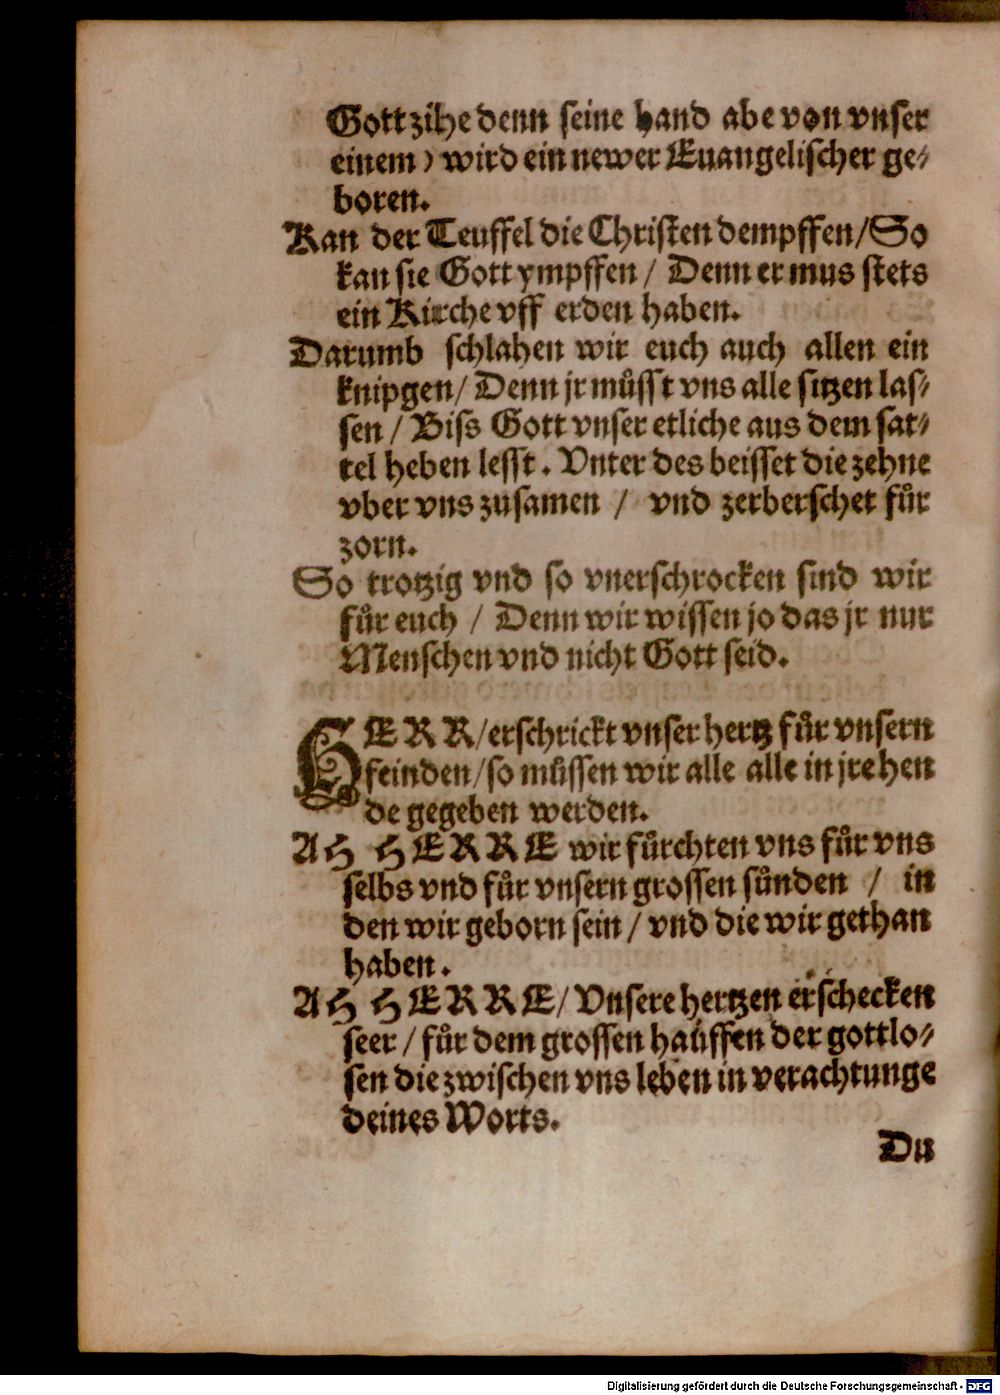 Gott zihe denn seine hand abe von vnser
einem) wird ein newer Euangelischer ge⸗
boren.
Kan der Teuffel die Christen dempffen/So
kan sie Gott ympffen / Denn er mus stets
ein Kirche vff erden haben.
Darumb schlahen wir euch auch allen ein
knipgen/ Denn jr muͤsst vns alle sitzen las⸗
sen / Biss Gott vnser etliche aus dem sat⸗
tel heben lesst. Vnter des beisset die zehne
vber vns zusamen / vnd zerberschet fuͤr
zorn.
So trotzig vnd so vnerschrocken sind wir
fuͤr euch / Denn wir wissen jo das jr nur
Menschen vnd nicht Gott seid.
HERR/erschrickt vnser hertz fuͤr vnsern
feinden/so muͤssen wir alle alle in jre hen
de gegeben werden.
AH HERRE wir fuͤrchten vns fuͤr vns
selbs vnd fuͤr vnsern grossen suͤnden / in
den wir geborn sein / vnd die wir gethan
haben.
AH HERRE/ Vnsere hertzen erschecken
seer / fuͤr dem grossen hauffen der gottlo⸗
sen die zwischen vns leben in verachtunge
deines Worts.
Du
Digitalisierung gefördert durch die Deutsche Forschungsgemeinschaft - DFG